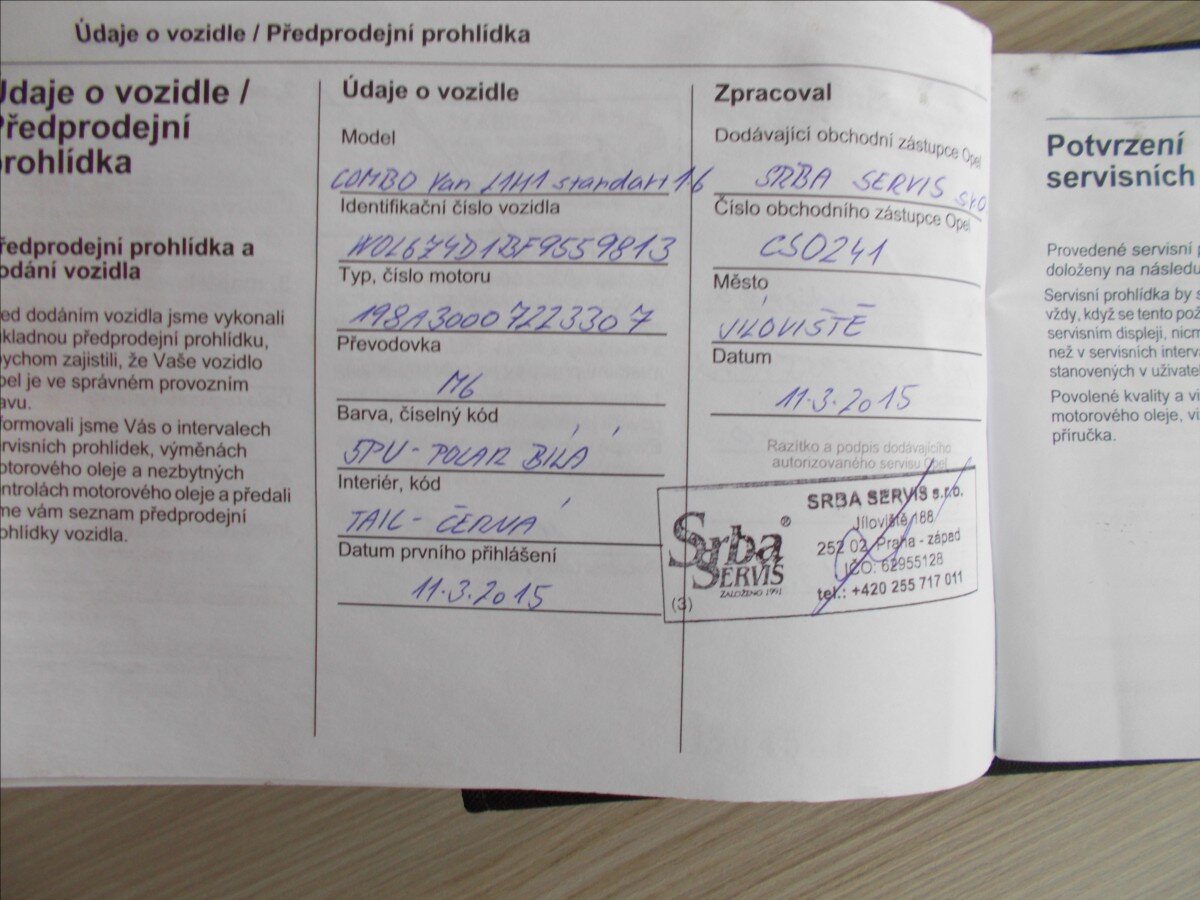 Údaje o vozidle / Předprodejní prohlídka
Údaje o vozidle /
Předprodejní
prohlídka
Předprodejní prohlídka a
dodání vozidla
řed dodáním vozidla jsme vykonali
kladnou předprodejní prohlídku,
bychom zajistili, že Vaše vozidlo
pel je ve správném provozním
avu.
formovali jsme Vás o intervalech
rvisních prohlídek, výměnách
otorového oleje a nezbytných
ontrolách motorového oleje a předali
me vám seznam předprodejní
ohlídky vozidla.
Údaje o vozidle
Model
COMBO Van L1H1 standart 1.6
Identifikační číslo vozidla
W0L674D1BF9559813
Typ, číslo motoru
198A3000 7223307
Převodovka
M6
Barva, číselný kód
5PU - POLAR BÍLÁ
Interiér, kód
TAIL - ČERNÁ
Datum prvního přihlášení
11.3.2015
Zpracoval
Dodávající obchodní zástupce Opel
SRBA SERVIS sro
Číslo obchodního zástupce Opel
CS0241
Město
JÍLOVIŠTĚ
Datum
11.3.2015
Razítko a podpis dodávajícího
autorizovaného servisu Opel
Srba®
SERVIS
ZALOŽENO 1991
SRBA SERVIS s.r.o.
Jíloviště 188
252 02 Praha - západ
IČO: 62955128
tel.: +420 255 717 011
(3)
Potvrzení
servisních
Provedené servisní
doloženy na následu
Servisní prohlídka by s
vždy, když se tento pož
servisním displeji, nicm
než v servisních interva
stanovených v uživatel
Povolené kvality a vi
motorového oleje, vi
příručka.